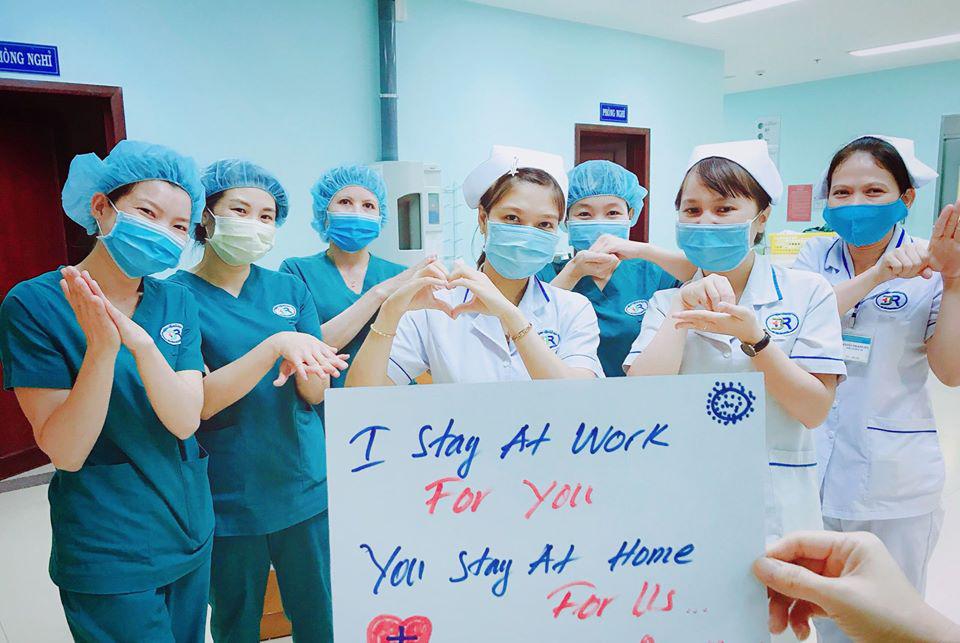 PHÒNG NGHỈ
PHÒNG NGHỈ
I Stay At Work
For You
You Stay At Home
For Us...